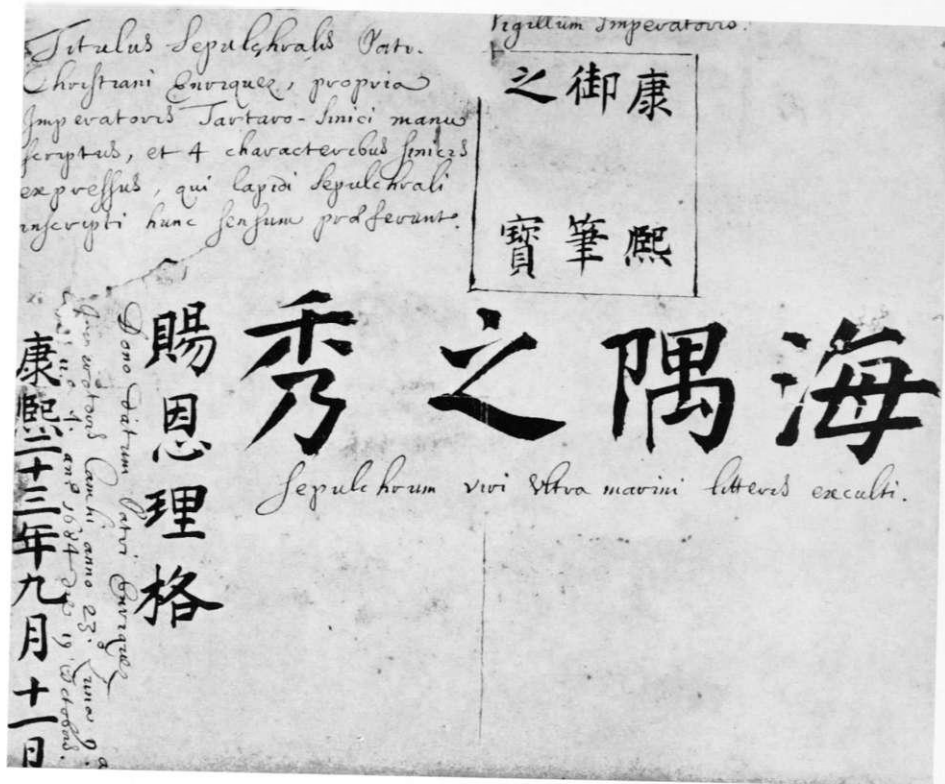 Titulus Sepulchralis Patr.
Christiani Enriquez, propria
Imperatoris Tartaro-Sinici manu
scriptus, et 4 characteribus sinicis
expressus, qui lapidi sepulchrali
inscripti hunc sensum præferunt.
Sigillum Imperatoris.
康熙
御筆
之寶
海隅之秀
Sepulchrum viri Vltra marini litteris exculti.
賜恩理格
Dono datum Patri Enriquez
Imperatoris Camhi anno 23. Lunæ 9.a
1684 die 19 Octobris.
康熙二十三年九月十一日